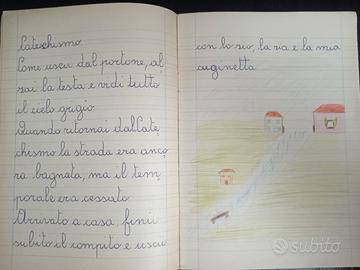 Catechismo.
Come uscii dal portone, al-
zai la testa e vidi tutto
il cielo grigio.
Quando ritornai dal Cate-
chismo la strada era anco-
ra bagnata, ma il tem-
porale era cessato.
Arrivato a casa, finii
subito il compito e uscii
con lo zio, la zia e la mia
cuginetta.
subito